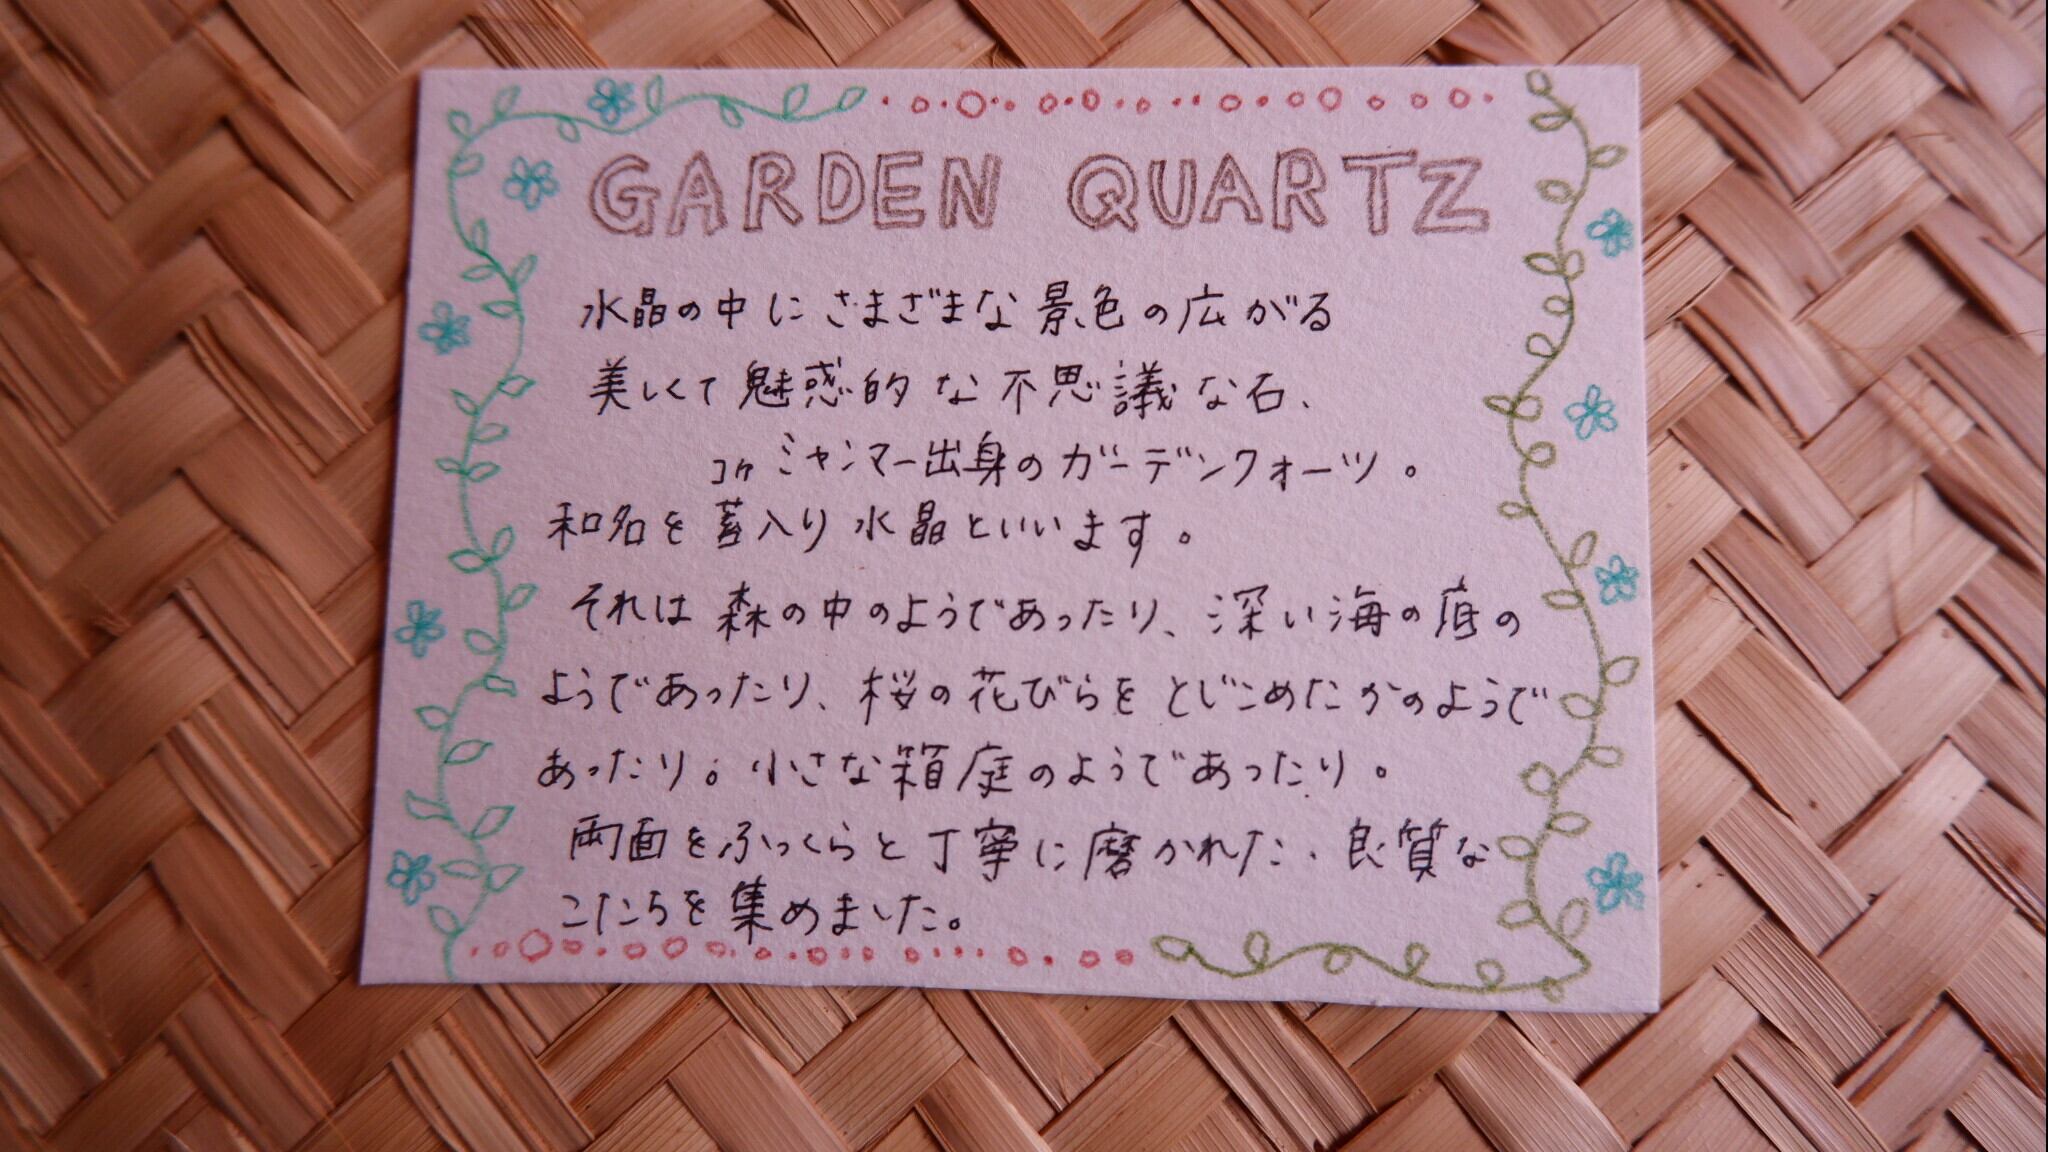 GARDEN QUARTZ
水晶の中にさまざまな景色の広がる
美しくて魅惑的な不思議な石、
ミャンマー出身のガーデンクォーツ。
コケ
和名を苔入り水晶といいます。
それは森の中のようであったり、深い海の底の
ようであったり、桜の花びらをとじこめたかのようで
あったり。小さな箱庭のようであったり。
両面をふっくらと丁寧に磨かれた、良質な
こたちを集めました。